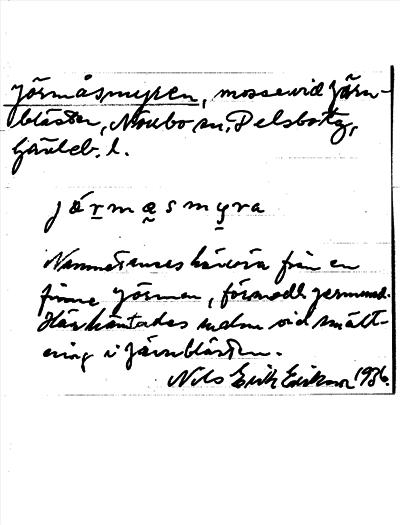 Jörmåsmyren, mosse vid Järn-
blästen, Noubo sn,
Gävleb. l.
j ö r m a s m y r a
Namnet anses härröra från en
finne Jörmen, förmodl. Jermund.
Här hämtades malm vid smält-
ning i Järnblästen.
Nils Erik Eriksson 1936.